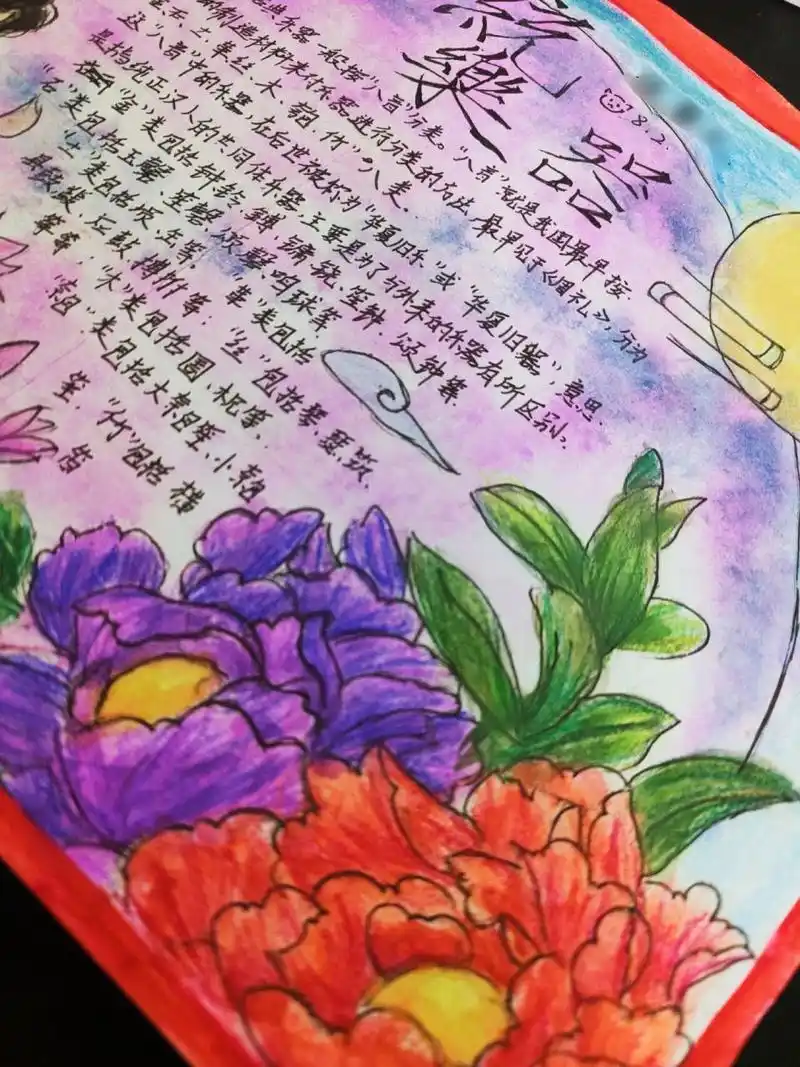 統
樂
器
8.2.
乐器一般按"八音"分类。"八音"就是我国最早按
制造材料来对乐器进行分类的方法,最早见于《周礼》,分为
土、革、丝、木、匏、竹"八类.
这"八音"中的乐器,在后世被称为"华夏旧乐"或"华夏旧器",意思
是指纯正汉人的共同体乐器,主要是为了与外来的乐器有所区别.
"金"类包括钟、铃、镈、编铙、笙钟、颂钟等.
"石"类包括玉磬、笙磬、颂磬、鸣球等.
类包括埙、缶等. "革"类包括
应鼓、搏拊等. "丝"包括琴、瑟、筑、
筝等. "木"类包括圄、柷等.
"匏"类包括大匏笙、小匏
笙. "竹"包括